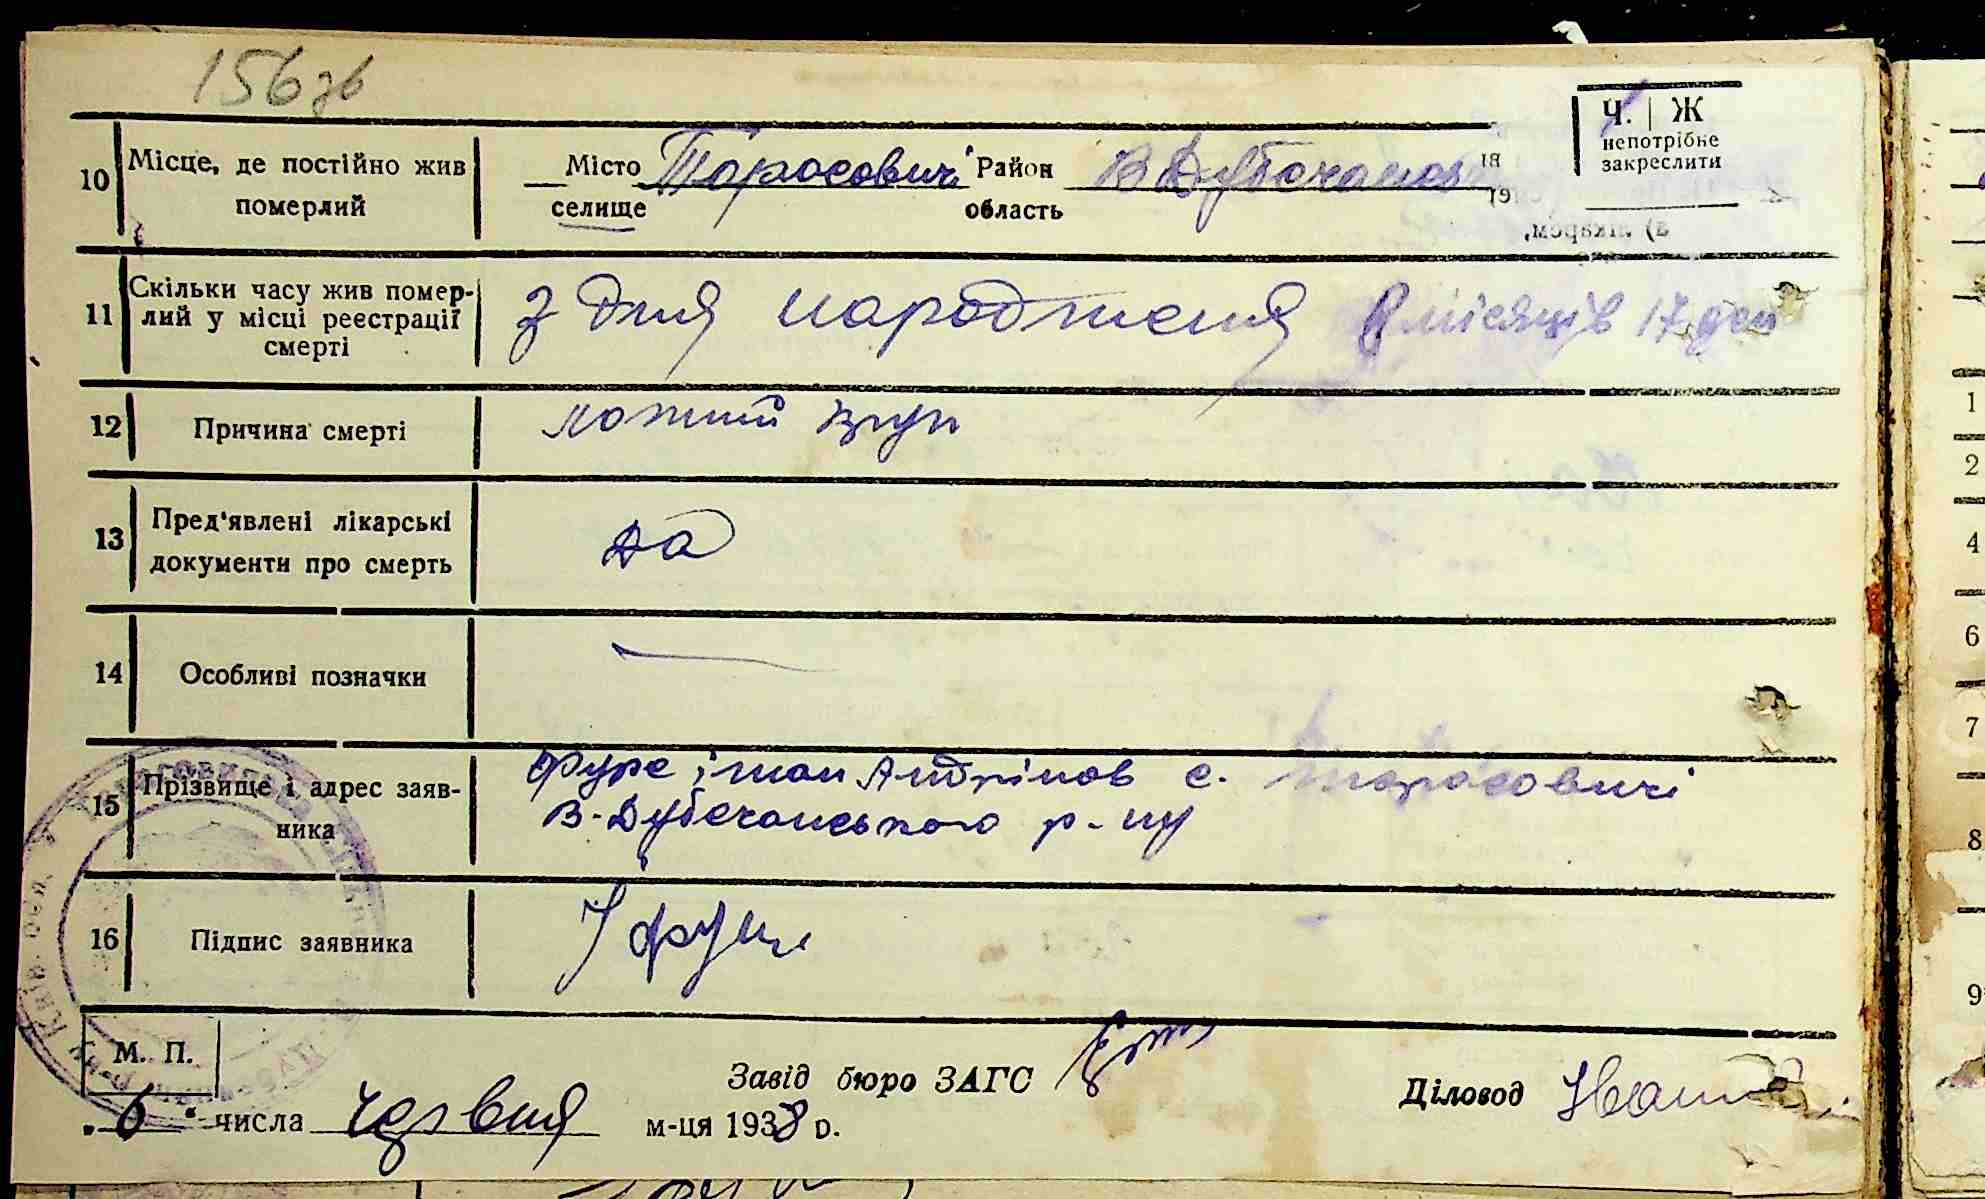 156 зв
Ч. | Ж
непотрібне
закреслити
10 Місце, де постійно жив померлий Місто селище Тарасовичі Район область В Дубечанськ
11 Скільки часу жив померлий у місці реєстрації смерті з дня народження 8 місяців 17 ден
12 Причина смерті ложний круп
13 Пред'явлені лікарські документи про смерть да
14 Особливі позначки —
15 Прізвище і адрес заявника Фурс Іван Андріянов с. Тарасовичі
В-Дубечанського р-ну
16 Підпис заявника
М. П.
Завід бюро ЗАГС
Діловод
„6“ числа червня м-ця 1938 р.
1
2
4
6
7
8
9